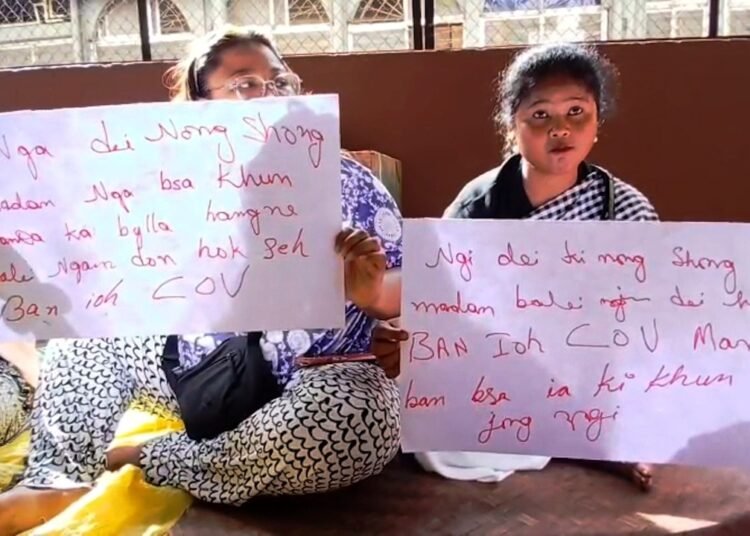 Nga dei Nong Shong
Madan Nga bsa Khun
ka bylla hangne
Ngam don hok seh
Ban ioh COV
Ngi dei ki nong Shong
madan balei dei
BAN Ioh COV
ban bsa ia ki Khun
jong ngi